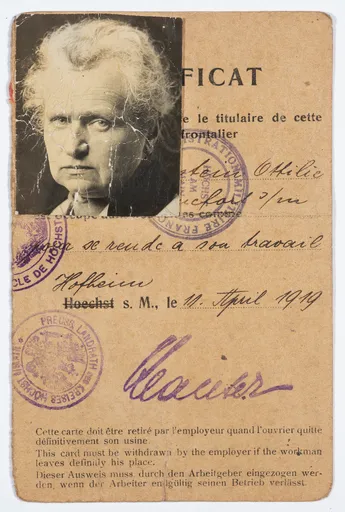 FICAT
e le titulaire de cette
frontalier
Ottilie
pour se rendre a son travail
Hofheim
Hoechst s. M., le 11. April 1919
PREUSS. LANDRATH DES KREISES HÖCHST
CLE DE HÖCHST
Cette carte doit être retiré par l'employeur quand l'ouvrier quitte
définitivement son usine.
This card must be withdrawn by the employer if the workman
leaves definitly his place.
Dieser Ausweis muss durch den Arbeitgeber eingezogen wer-
den, wenn der Arbeiter endgültig seinen Betrieb verlässt.